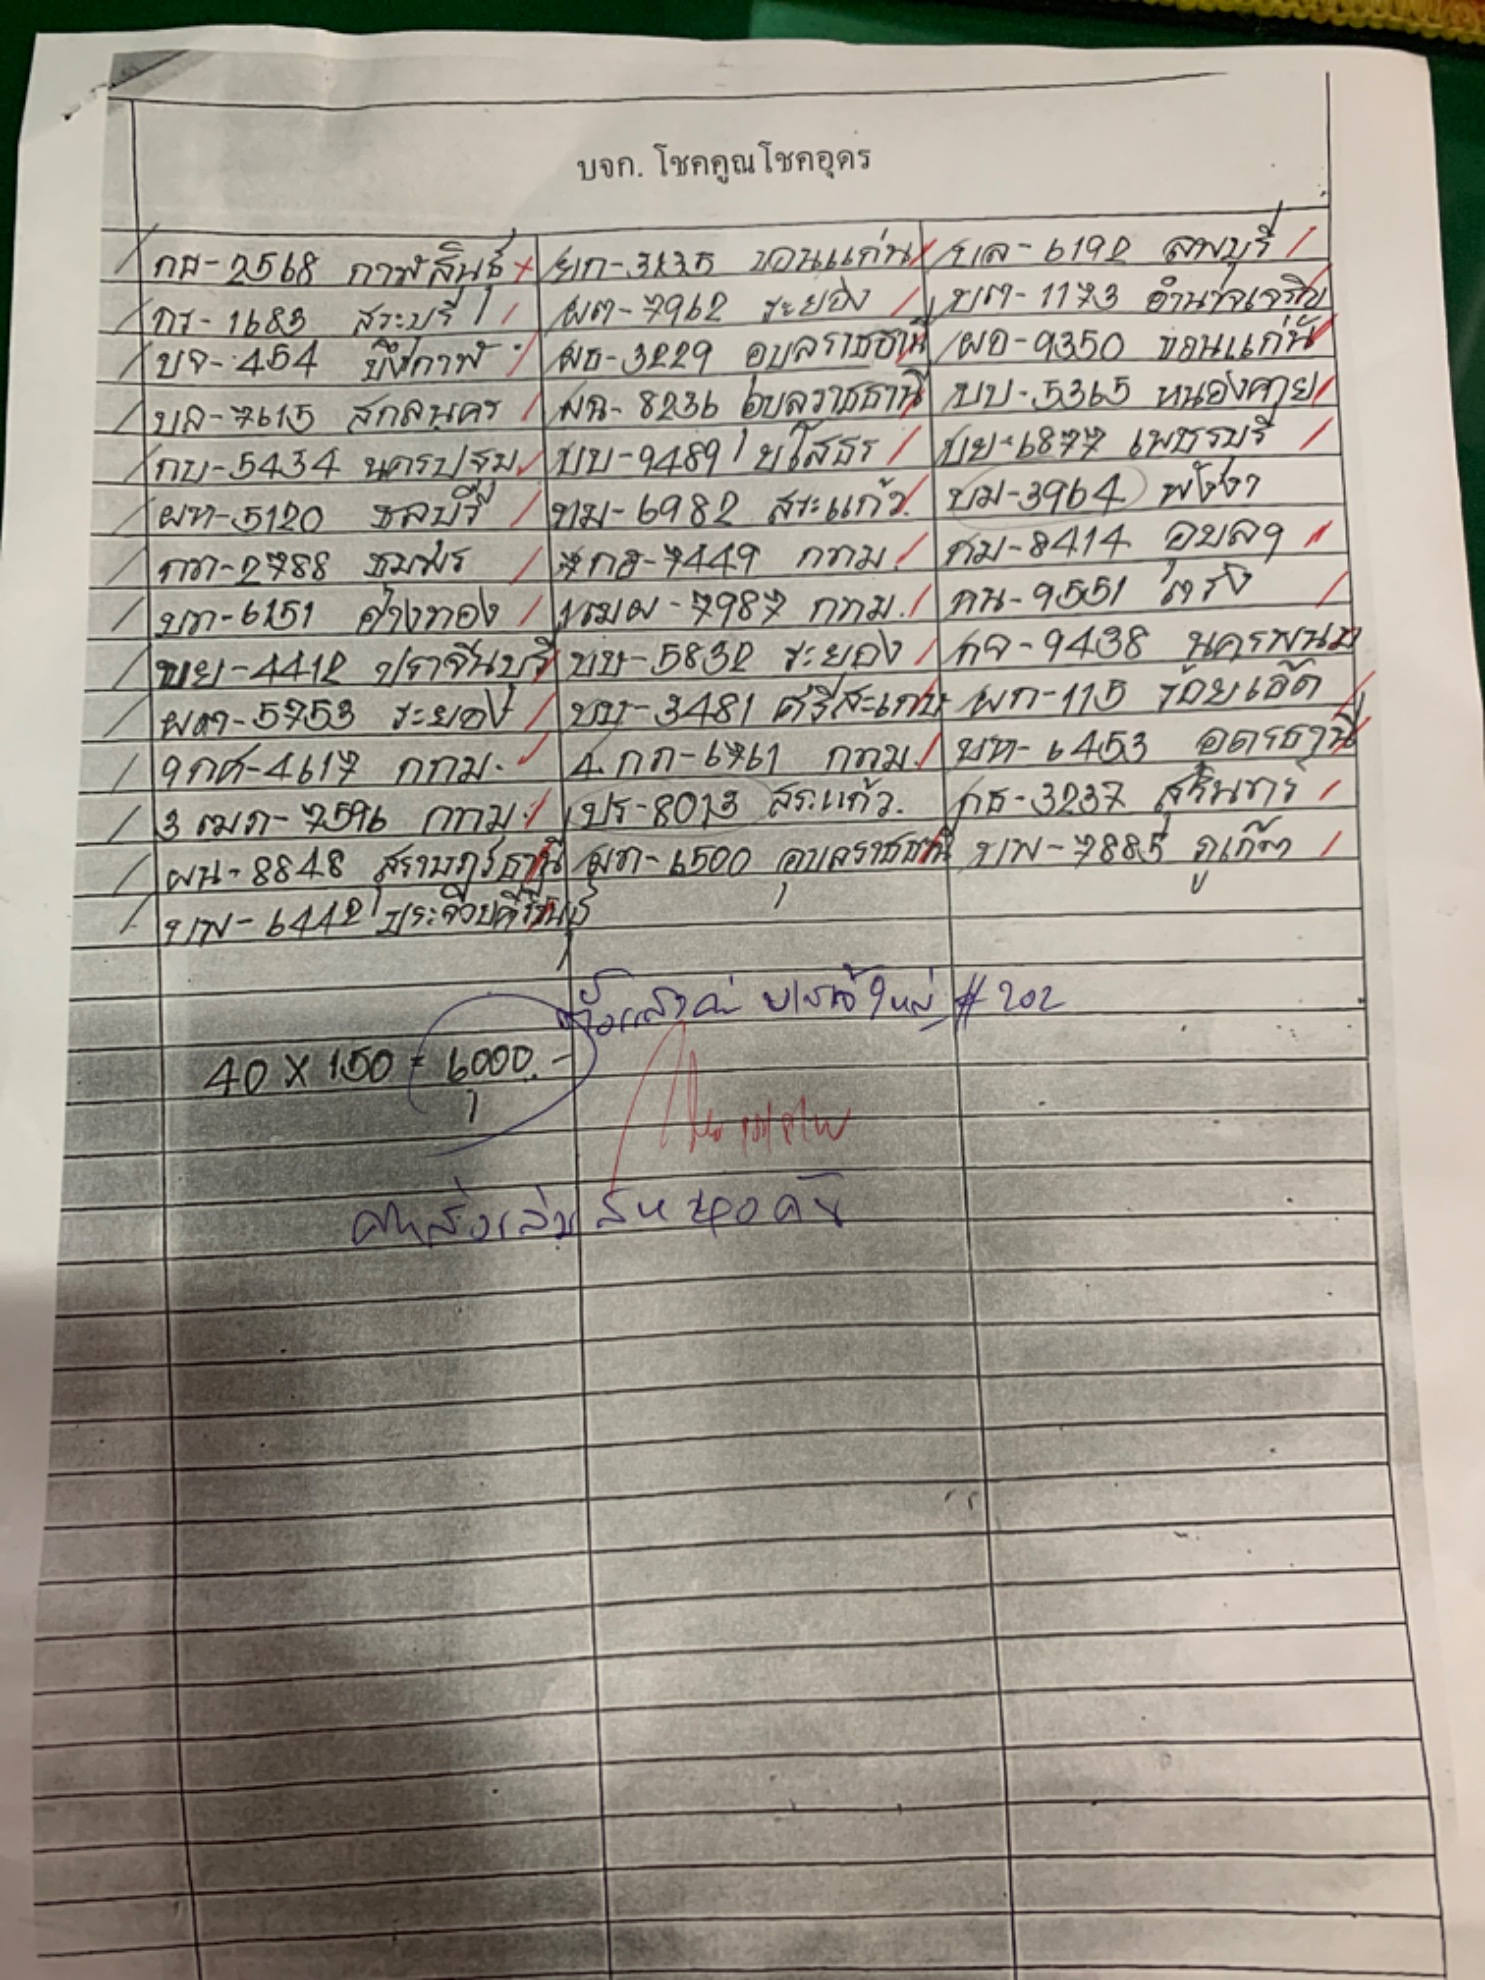 บจก. โชคคูณโชคอุดร
กศ-2568 กาฬสินธุ์ ยก-3235 ขอนแก่น บล-6192 ลพบุรี
กร-1683 สระบุรี ผต-7962 ระยอง บต-1173 อำนาจเจริญ
บจ-454 บึงกาฬ ผธ-3229 อุบลราชธานี ผอ-9350 ขอนแก่น
บล-7615 สกลนคร ผฉ-8236 อุบลราชธานี บบ-5365 หนองคาย
กบ-5434 นครปฐม บบ-9489 ยโสธร บย-6877 เพชรบุรี
ผท-5120 ชลบุรี บม-6982 สระแก้ว บม-3964 พังงา
กท-2788 ชุมพร 7กอ-7449 กทม. กม-8414 อุบลฯ
บก-6151 อ่างทอง 1ฒผ-7987 กทม. กน-9551 ตรัง
บย-4412 ปราจีนบุรี บบ-5832 ระยอง กจ-9438 นครพนม
ผต-5753 ระยอง บบ-3481 ศรีสะเกษ ผก-115 ร้อยเอ็ด
9กศ-4617 กทม. 4กก-6761 กทม. บห-6453 อุดรธานี
3ฒภ-7596 กทม. ปร-8013 สระแก้ว. กธ-3237 สุรินทร์
ผน-8848 สุราษฎร์ธานี ผก-6500 อุบลราชธานี บพ-7885 ภูเก็ต
บพ-6442 ประจวบคีรีขันธ์
#202
40 X 150 = 6000.-